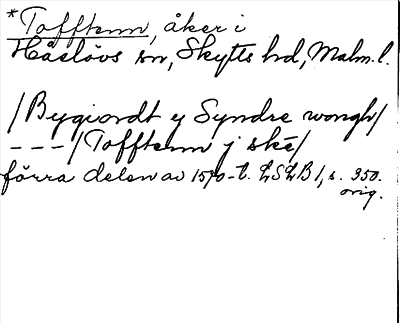 *Tofftenn, åker i
Håslövs sn, Skytts hd, Malm. l.
/Bygiordt y Syndre wongh/
---/Tofftenn j ske/
förra delen av 1570-t. LSLB 1, s. 350.
orig.